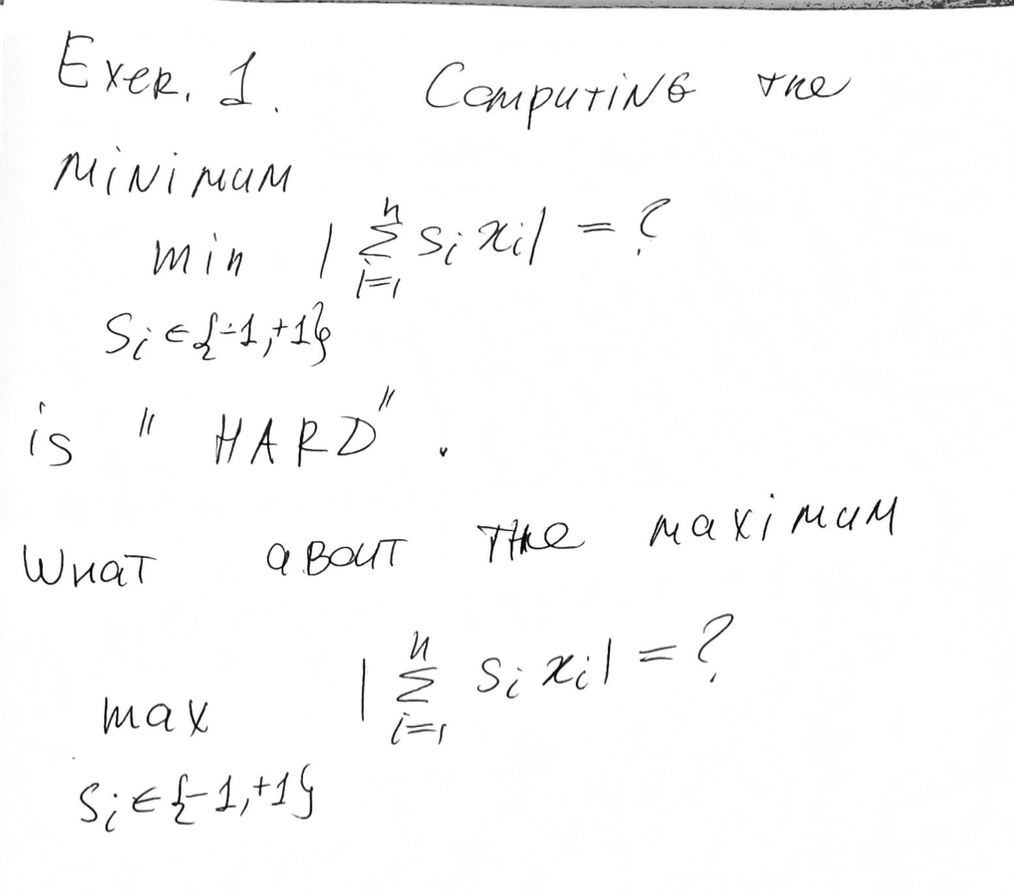 Exer. 1. Computing the
minimum
min | n∑i=1 si xi| = ?
si ∈ {-1,+1}
is "HARD".
What about the maximum
max | n∑i=1 si xi| = ?
si ∈ {-1,+1}